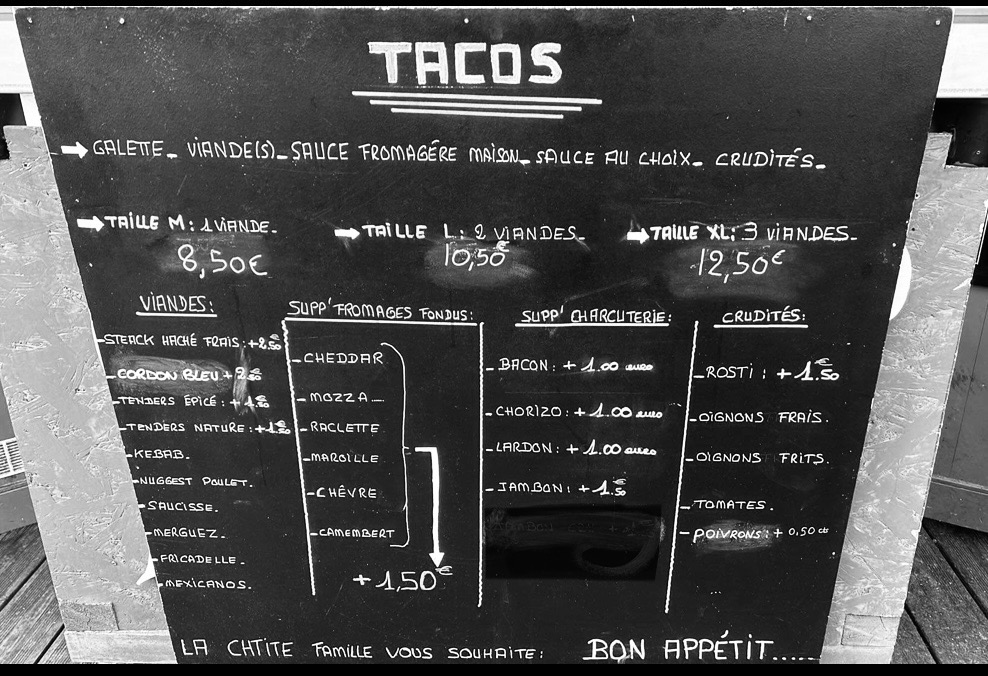 TACOS
GALETTE_ VIANDE(S)_SAUCE FROMAGÉRE MAISON_ SAUCE AU CHOIX_ CRUDITÉS_
TAILLE M: 1 VIANDE_
8,50€
TAILLE L: 2 VIANDES_
10,50€
TAILLE XL: 3 VIANDES_
12,50€
VIANDES:
_STEACK HACHÉ FRAIS: +2.50€
_CORDON BLEU + 2.50€
_TENDERS ÉPICÉ: + 1.50€
_TENDERS NATURE: +1.50€
_KEBAB_
_NUGGEST POULET_
_SAUCISSE_
_MERGUEZ_
_FRICADELLE_
_MEXICANOS_
SUPP' FROMAGES FONDUS:
_CHEDDAR
_MOZZA_
_RACLETTE
_MAROILLE
_CHÊVRE
_CAMEMBERT
+1,50€
SUPP' CHARCUTERIE:
_BACON: + 1.00 euro
_CHORIZO: + 1.00 euro
_LARDON: + 1.00 euro
_JAMBON: + 1.50€
CRUDITÉS:
_ROSTI: + 1.50€
_OIGNONS FRAIS.
_OIGNONS FRITS.
_TOMATES_
_POIVRONS: + 0,50 cts
LA CHTITE FAMILLE VOUS SOUHAITE: BON APPÉTIT.....